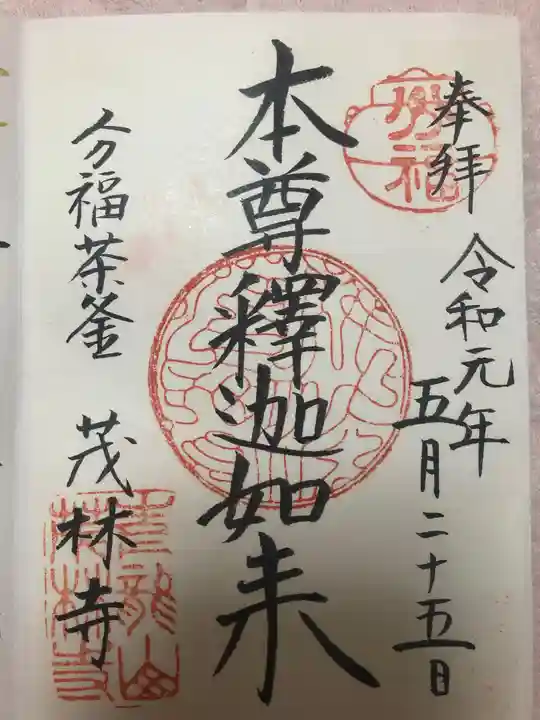 奉拝
令和元年
五月二十五日
本尊釋迦如来
分福茶釜
茂林寺
分福
青龍山
茂林寺